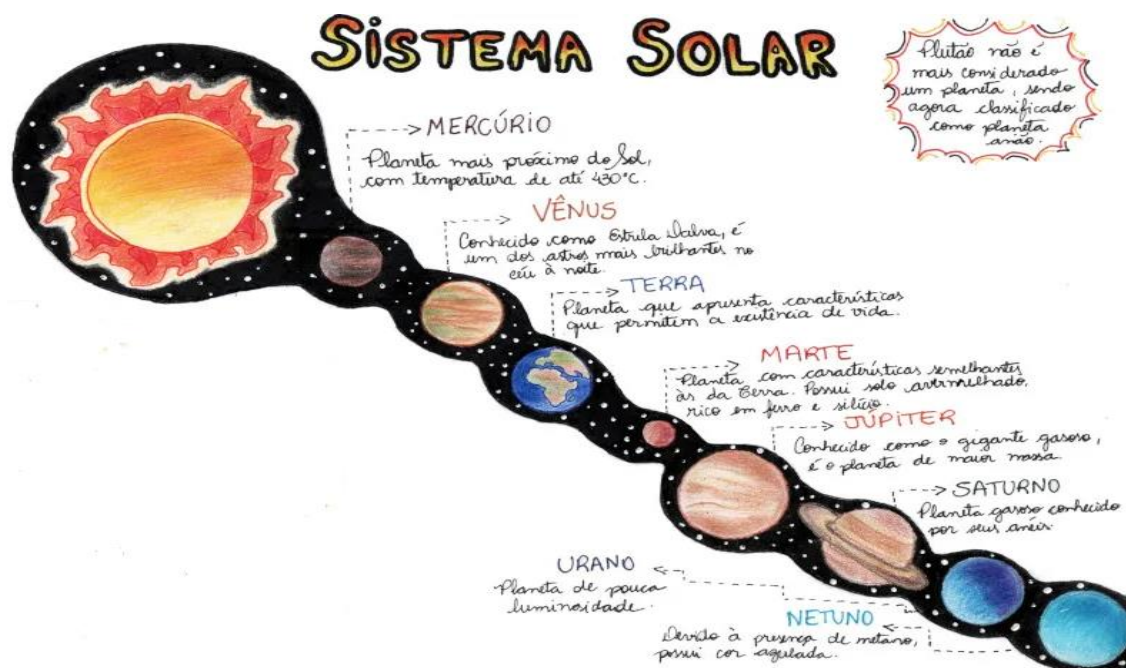 SISTEMA SOLAR
Plutão não é
mais considerado
um planeta, sendo
agora classificado
como planeta
anão.
MERCÚRIO
Planeta mais próximo do Sol,
com temperatura de até 430°C.
VÊNUS
Conhecido como Estrela Dalva, é
um dos astros mais brilhantes no
céu à noite.
TERRA
Planeta que apresenta características
que permitem a existência de vida.
MARTE
Planeta com características semelhantes
às da Terra. Possui solo avermelhado,
rico em ferro e silício.
JÚPITER
Conhecido como o gigante gasoso,
é o planeta de maior massa
SATURNO
Planeta gasoso conhecido
por seus anéis.
URANO
Planeta de pouca
luminosidade.
NETUNO
Devido à presença de metano,
possui cor azulada.